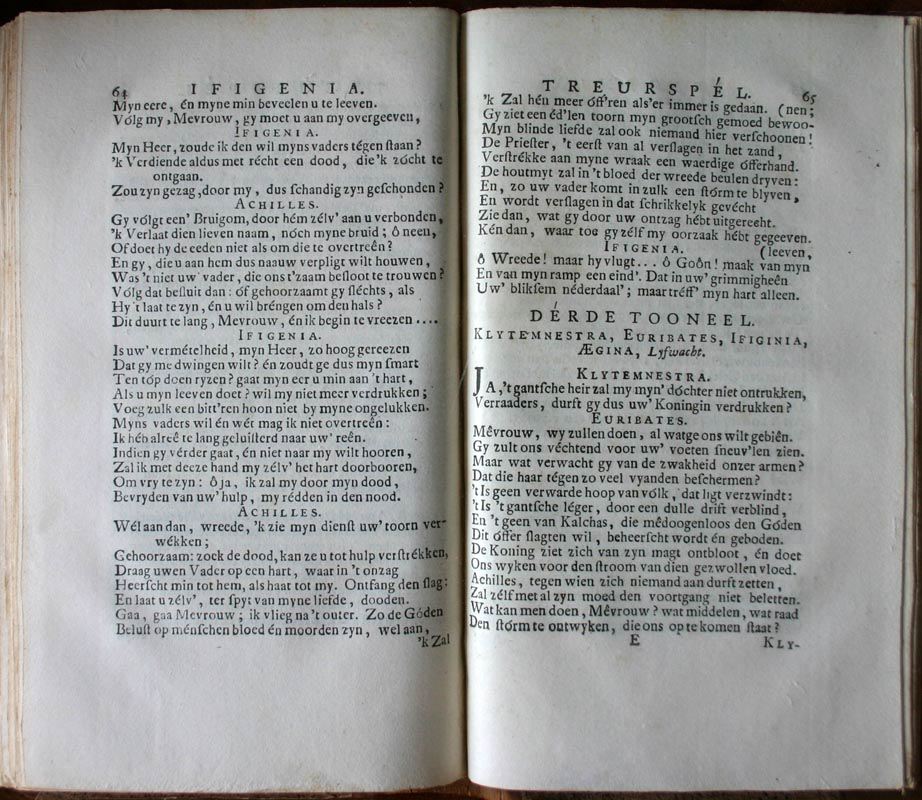 64 IFIGENIA.
Myn eere, én myne min beveelen u te leeven.
Vólg my, Mevrouw, gy moet u aan my overgeeven,
IFIGENIA.
Myn Heer, zoude ik den wil myns vaders tégen ſtaan?
'k Verdiende aldus met récht een dood, die 'k zócht te
ontgaan.
Zou zyn gezag, door my, dus ſchandig zyn geſchonden?
ACHILLES.
Gy vólgt een' Bruigom, door hém zélv' aan u verbonden,
'k Verlaat dien lieven naam, nóch myne bruid; ô neen,
Of doet hy de eeden niet als om die te overtreên?
En gy, die u aan hem dus naauw verpligt wilt houwen,
Was 't niet uw' vader, die ons t'zaam beſloot te trouwen?
Vólg dat beſluit dan: óf gehoorzaamt gy ſléchts, als
Hy 't laat te zyn, én u wil bréngen om den hals?
Dit duurt te lang, Mevrouw, én ik begin te vreezen ....
IFIGENIA.
Is uw' vermételheid, myn Heer, zo hoog gereezen
Dat gy me dwingen wilt? én zoudt ge dus myn ſmart
Ten tóp doen ryzen? gaat myn eer u min aan 't hart,
Als u myn leeven doet? wil my niet meer verdrukken;
Voeg zulk een bitt'ren hoon niet by myne ongelukken.
Myns vaders wil én wét mag ik niet overtreên:
Ik héb alreê te lang geluiſterd naar uw' reên.
Indien gy vérder gaat, én niet naar my wilt hooren,
Zal ik met deeze hand my zélv' het hart doorbooren,
Om vry te zyn: ô ja, ik zal my door myn dood,
Bevryden van uw' hulp, my rédden in den nood.
ACHILLES.
Wél aan dan, wreede, 'k zie myn dienſt uw' toorn ver-
wékken;
Gehoorzaam: zoek de dood, kan ze u tot hulp verſtrékken,
Draag uwen Vader op een hart, waar in 't onzag
Heerſcht min tot hem, als haat tot my. Ontfang den ſlag:
En laat u zélv', ter ſpyt van myne liefde, dooden.
Gaa, gaa Mevrouw; ik vlieg na 't outer. Zo de Góden
Beluſt op ménſchen bloed én moorden zyn, wel aan,
'k Zal
TREURSPÉL. 65
'k Zal hén meer óff'ren als'er immer is gedaan. (nen;
Gy ziet een éd'len toorn myn grootſch gemoed bewoo-
Myn blinde liefde zal ook niemand hier verſchoonen!
De Prieſter, 't eerſt van al verſlagen in het zand,
Verſtrékke aan myne wraak een waerdige ófferhand.
De houtmyt zal in 't bloed der wreede beulen dryven:
En, zo uw vader komt in zulk een ſtórm te blyven,
En wordt verſlagen in dat ſchrikkelyk gevécht
Zie dan, wat gy door uw ontzag hébt uitgerecht.
Kén dan, waar toe gy zélf my oorzaak hébt gegeeven.
IFIGENIA. (leeven,
ô Wreede! maar hy vlugt... ô Goôn! maak van myn
En van myn ramp een eind'. Dat in uw' grimmigheên
Uw' blikſem néderdaal'; maar tréff' myn hart alleen.
DÉRDE TOONEEL.
KLYTEMNESTRA, EURIBATES, IFIGINIA,
ÆGINA, Lyfwacht.
KLYTEMNESTRA.
JA, 't gantſche heir zal my myn' dóchter niet ontrukken,
Verraaders, durft gy dus uw' Koningin verdrukken?
EURIBATES.
Mêvrouw, wy zullen doen, al wat ge ons wilt gebiên.
Gy zult ons véchtend voor uw' voeten ſneuv'len zien.
Maar wat verwacht gy van de zwakheid onzer armen?
Dat die haar tégen zo veel vyanden beſchermen?
't Is geen verwarde hoop van vólk, dat ligt verzwindt:
't Is 't gantſche léger, door een dulle drift verblind,
En 't geen van Kalchas, die mêdoogenloos den Góden
Dit óffer ſlagten wil, beheerſcht wordt én geboden.
De Koning ziet zich van zyn magt ontbloot, én doet
Ons wyken voor den ſtroom van dien gezwollen vloed.
Achilles, tegen wien zich niemand aan durft zetten,
Zal zélf met al zyn moed den voortgang niet beletten.
Wat kan men doen, Mêvrouw? wat middelen, wat raad
Den ſtórm te ontwyken, die ons op te komen ſtaat?
E KLY-